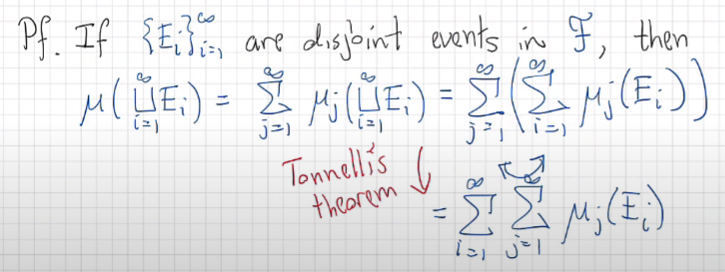 Pf. If {E_i}_{i=1}^∞ are disjoint events in ℱ, then
μ(⨆_{i=1}^∞ E_i) = ∑_{j=1}^∞ μ_j(⨆_{i=1}^∞ E_i) = ∑_{j=1}^∞ (∑_{i=1}^∞ μ_j(E_i))
Tonnelli's
theorem ↓
= ∑_{i=1}^∞ ∑_{j=1}^∞ μ_j(E_i)